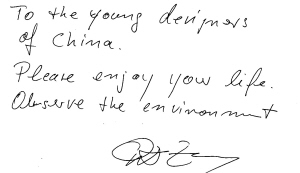 To the young designers
of China.
Please enjoy your life.
Observe the environment